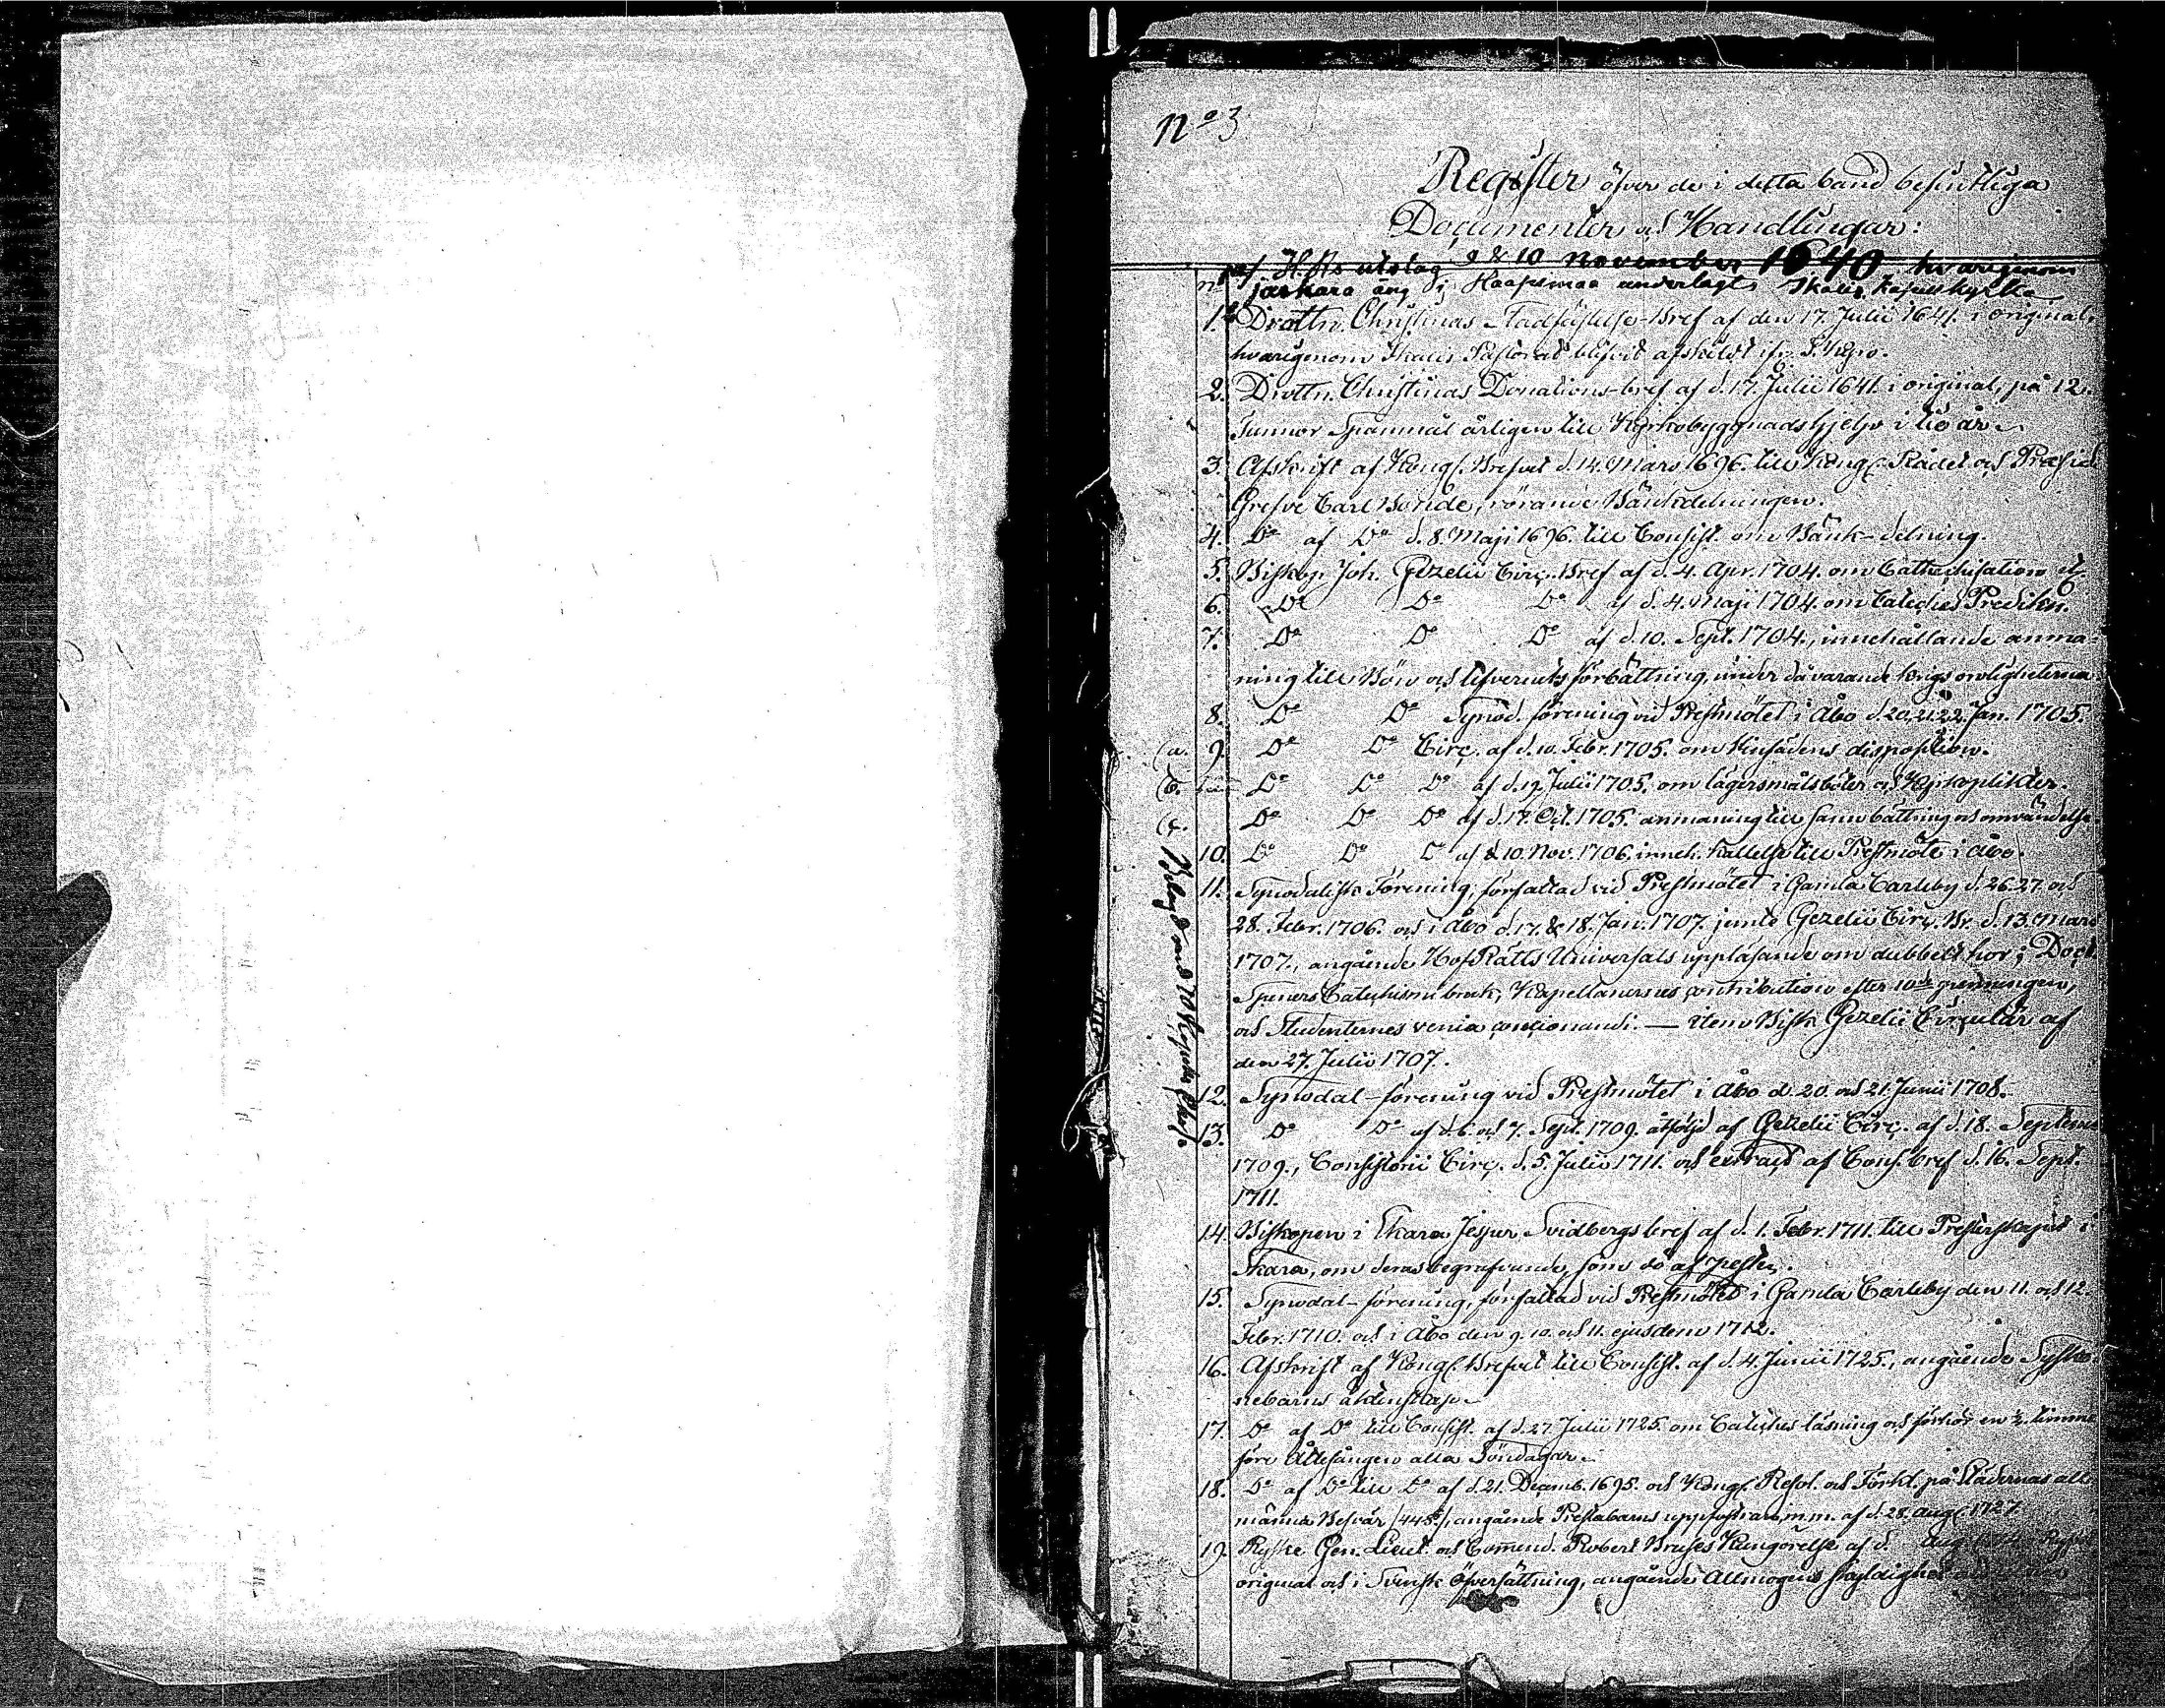 No 3
Register öfver de i detta band befintliga
Documenter och Handlingar:
af H. Rs utslag 9 & 10 November 1640 hvarigenom
jarkara äng i Haapsmaa underlagts Ikalis Kapellkyrka
1. Drottn. Christinas Stadfästelse-Bref af den 17. Julii 1641. i original,
hvarigenom Ikalis Pastorat blifvit afskildt ifr. Kyro.
2. Drottn. Christinas Donations-bref af d. 17. Julii 1641. i original, på 12.
Tunnor Spanmål årligen till Kyrkobyggnadshjelp i tio år.
3. Afskrift af Kongl. Brefvet d. 14. Mars 1696. till Kongl. Rådet och Præsid.
Grefve Carl Bonde, rörande Bänkdelningen.
4. Do af Do d. 8. Maji 1696. till Consist. om Bänk-delning.
5. Biskop Joh. Gezelii Circ. Bref af d. 4. Apr. 1704. om Cathechisation etc.
6. Do Do Do af d. 4. Maji 1704. om Catechis Predikn.
7. Do Do Do af d. 10. Sept. 1704., innehållande anma-
ning till Bön och lefvernets förbättring, under dåvarande krigsoroligheterna
8. Do Do Synod. förening vid Prestmötet i Åbo d. 20. 21. 22. Jan. 1705.
(a. 9. Do Do Circ. af d. 10. Febr. 1705. om disposition.
(b. Do Do Do af d. 19. Julii 1705. om lägersmålsböter och Kyrkoplikter.
(c. Do Do Do af d. 17. Oct. 1705. anmaning till sann bättring och omvändelse
10. Do Do Do af d. 10. Nov. 1706. inneh. kallelse till Prestmöte i Åbo.
11. Synodalisk Förening, författad vid Prestmötet i Gamla Carleby d. 26. 27. och
28. Febr. 1706. och i Åbo d. 17. & 18. Jan. 1707. jemte Gezelii Circ. Br. d. 13. Mars
1707., angående HofRätts Universals uppläsande om dubbelt hor; Doct.
Speners Catechismi bruk; Kapellanernes contribution efter
och Studenternes venia concionandi. — item Bisk. Gezelii Circulär af
den 27. Julii 1707.
12. Synodal-förening vid Prestmötet i Åbo d. 20. och 21. Junii 1708.
13. Do Do af d. 6. och 7. Sept. 1709. åtföljd af Gezelii Circ. af d. 18. Septemb.
1709., Consistorii Circ. d. 5. Julii 1711. och extract af Cons. bref d. 16. Sept.
1711.
14. Biskopen i Skara Jesper Svidbergs bref af d. 1. Febr. 1711. till Presterskapet i
Skara, om deras begrafvande, som dö af pesten.
15. Synodal-förening, författad vid Prestmötet i Gamla Carleby den 11. och 12.
Febr. 1710. och i Åbo den 9. 10. och 11. ejusdem 1712.
16. Afskrift af Kongl. Brefvet till Consist. af d. 4. Junii 1725., angående Sysko-
nebarns äktenskap.
17. Do af Do till Consist. af d. 27. Julii 1725. om Catiches läsning och förhör en ½ timme
före Ottesången alla Söndagar.
18. Do af Do till Do af d. 21. Decemb. 1695. och Kongl. Resol. och Förkl. på Städernas all-
männa Besvär /44 §/, angående Prestabarns uppfostran, m.m. af d. 28. Aug. 1727.
19. Ryske Gen. Lieut. och Commend. Robert Bruses Kungörelse af d. Aug.
original och i Svensk öfversättning, angående Allmogens skyldighet